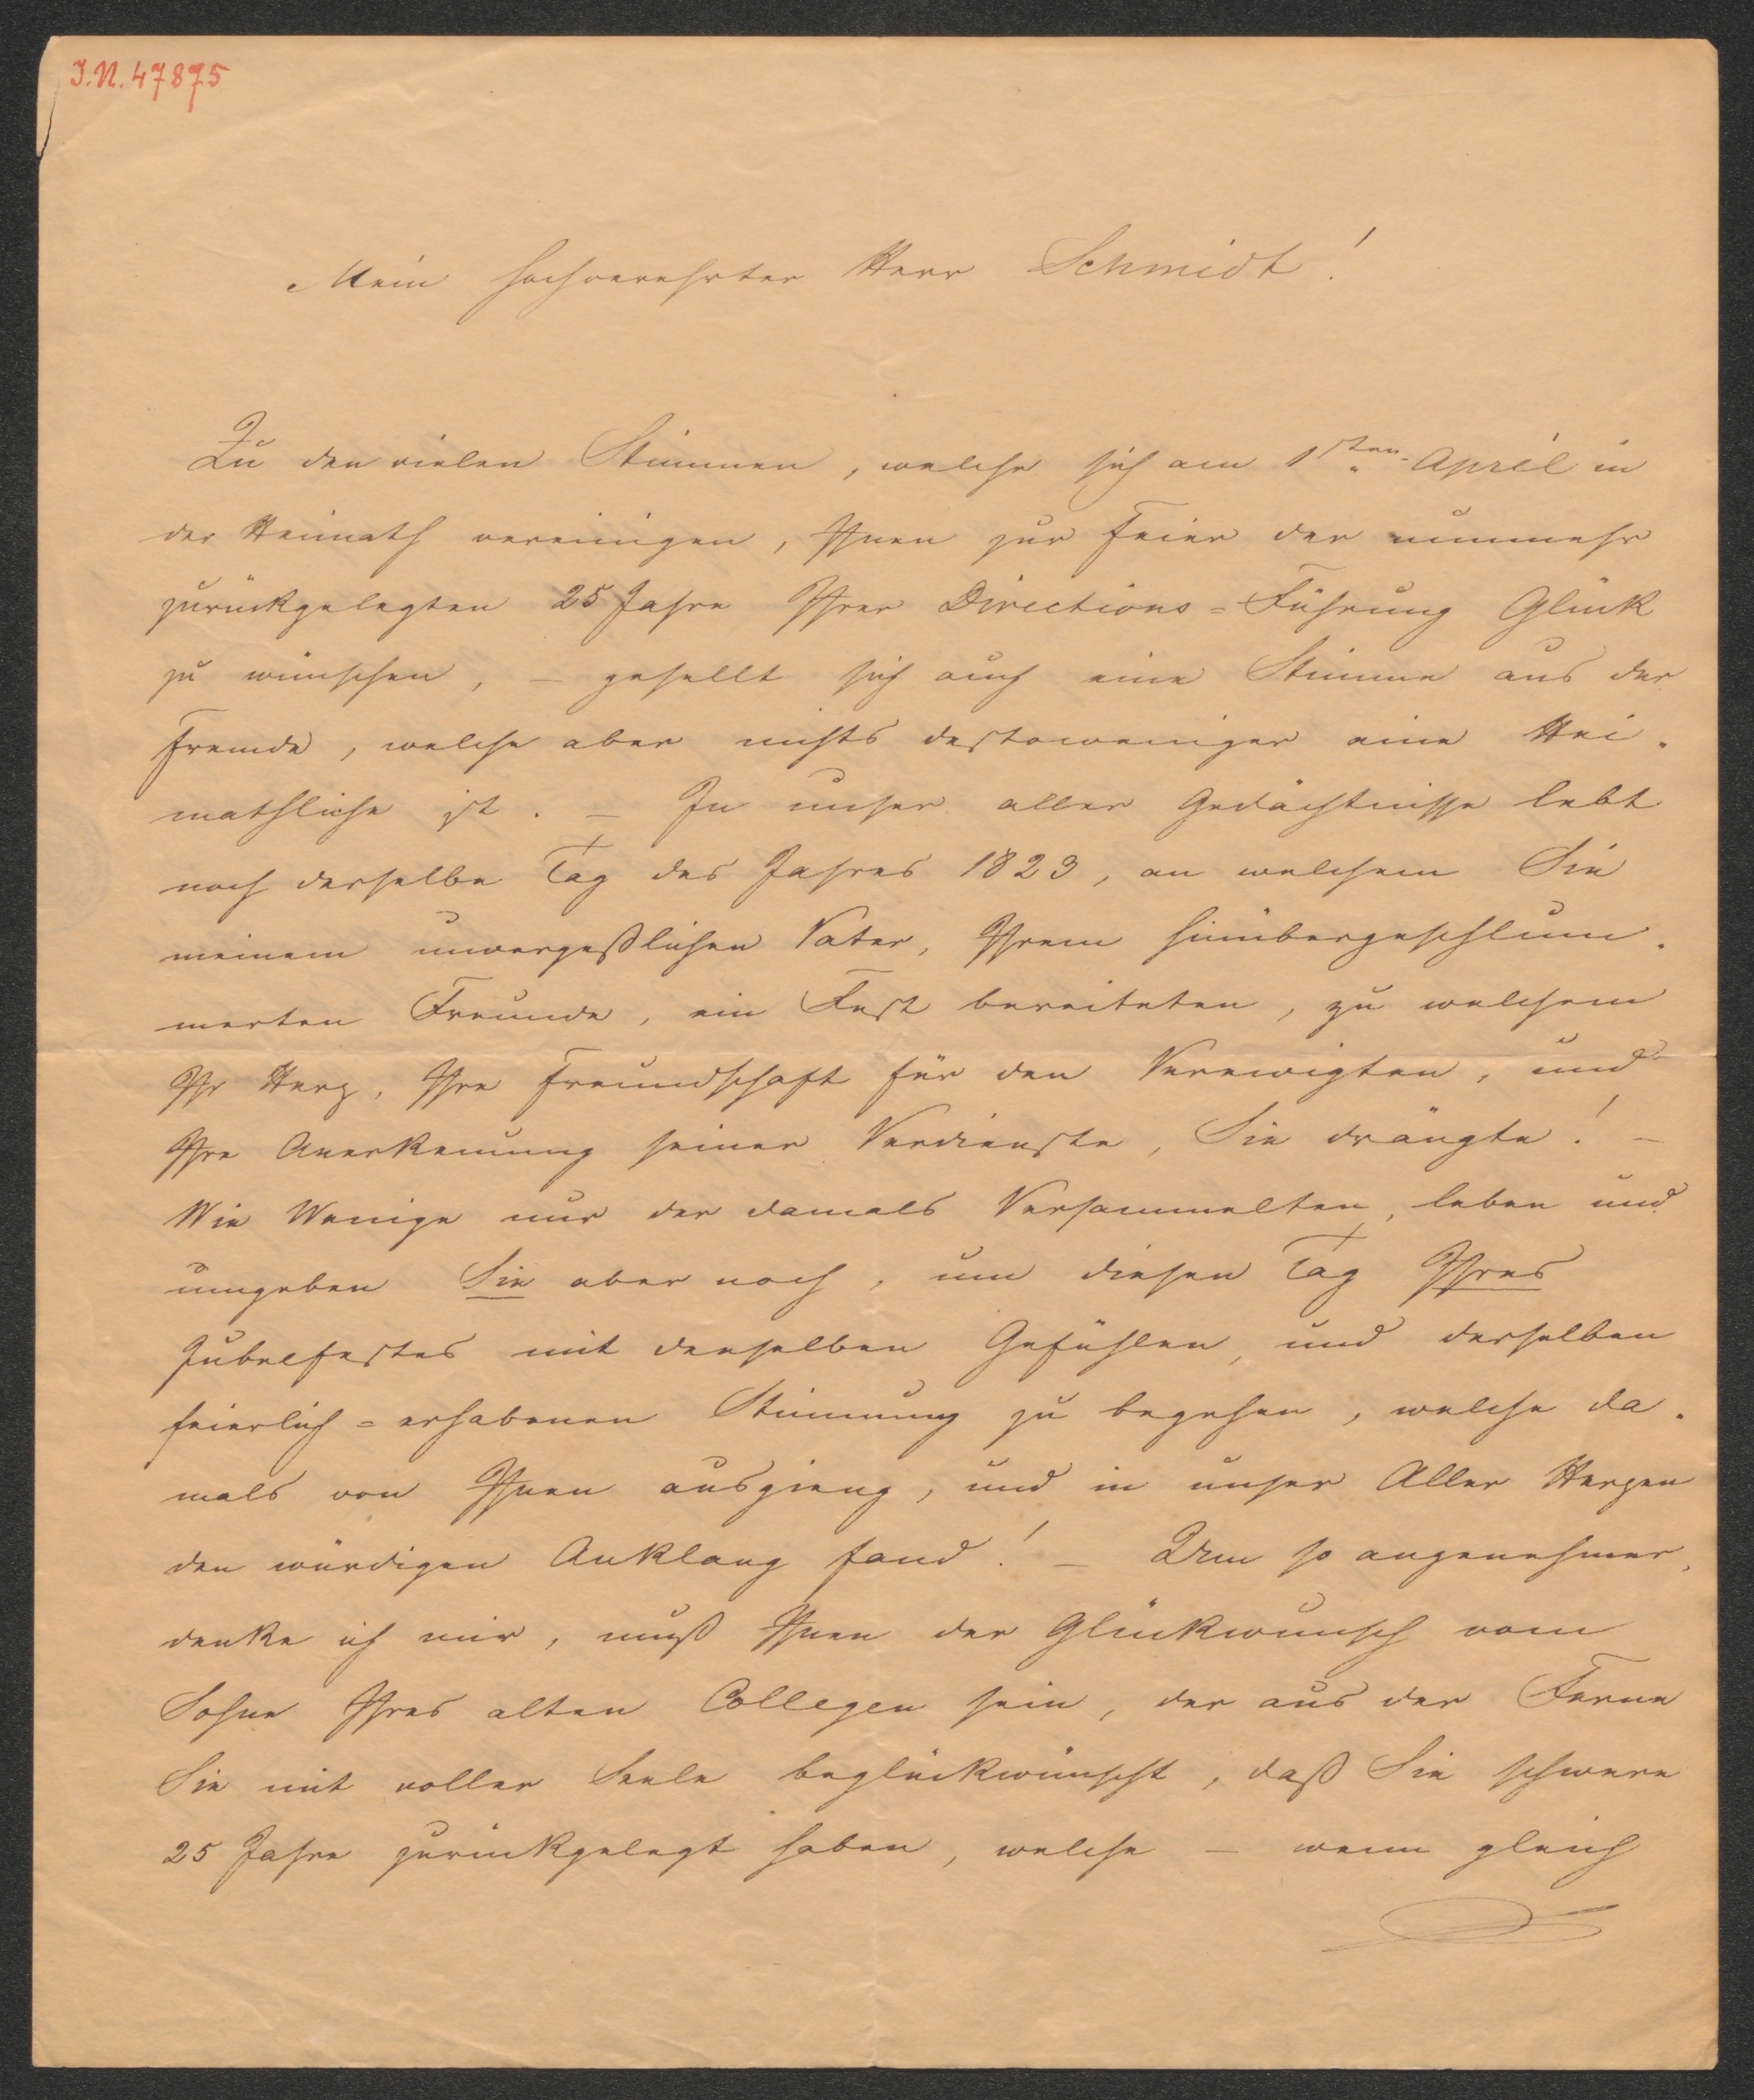 I.N. 47875
Mein hochverehrter Herr Schmidt!
Zu den vielen Stimmen, welche sich am 1sten April in
der Heimath vereinigen, Ihnen zur Feier der nunmehr
zurückgelegten 25 Jahre Ihrer Directions=Führung Glück
zu wünschen, – gesellt sich auch eine Stimme aus der
Fremde, welche aber nichts destoweniger eine Hei-
mathliche ist. – In unser aller Gedächtnisse lebt
noch derselbe Tag des Jahres 1823, an welchem Sie
meinem unvergeßlichen Vater, Ihrem hinübergeschlum-
merten Freunde, ein Fest bereiteten, zu welchem
Ihr Herz, Ihre Freundschaft für den Verewigten, und
Ihre Anerkennung seiner Verdienste, Sie drängte! –
Wie Wenige nur der damals Versammelten, leben und
umgeben Sie aber noch, um diesen Tag Ihres
Jubelfestes mit denselben Gefühlen, und derselben
feierlich=erhabenen Stimmung zu begehen, welche da-
mals von Ihnen ausgieng, und in unser Aller Herzen
den würdigen Anklang fand! – Um so angenehmer,
denke ich mir, muß Ihnen der Glückwunsch vom
Sohne Ihres alten Collegen sein, der aus der Ferne
Sie mit voller Seele beglückwünscht, daß Sie schwere
25 Jahre zurückgelegt haben, welche – wenn gleich